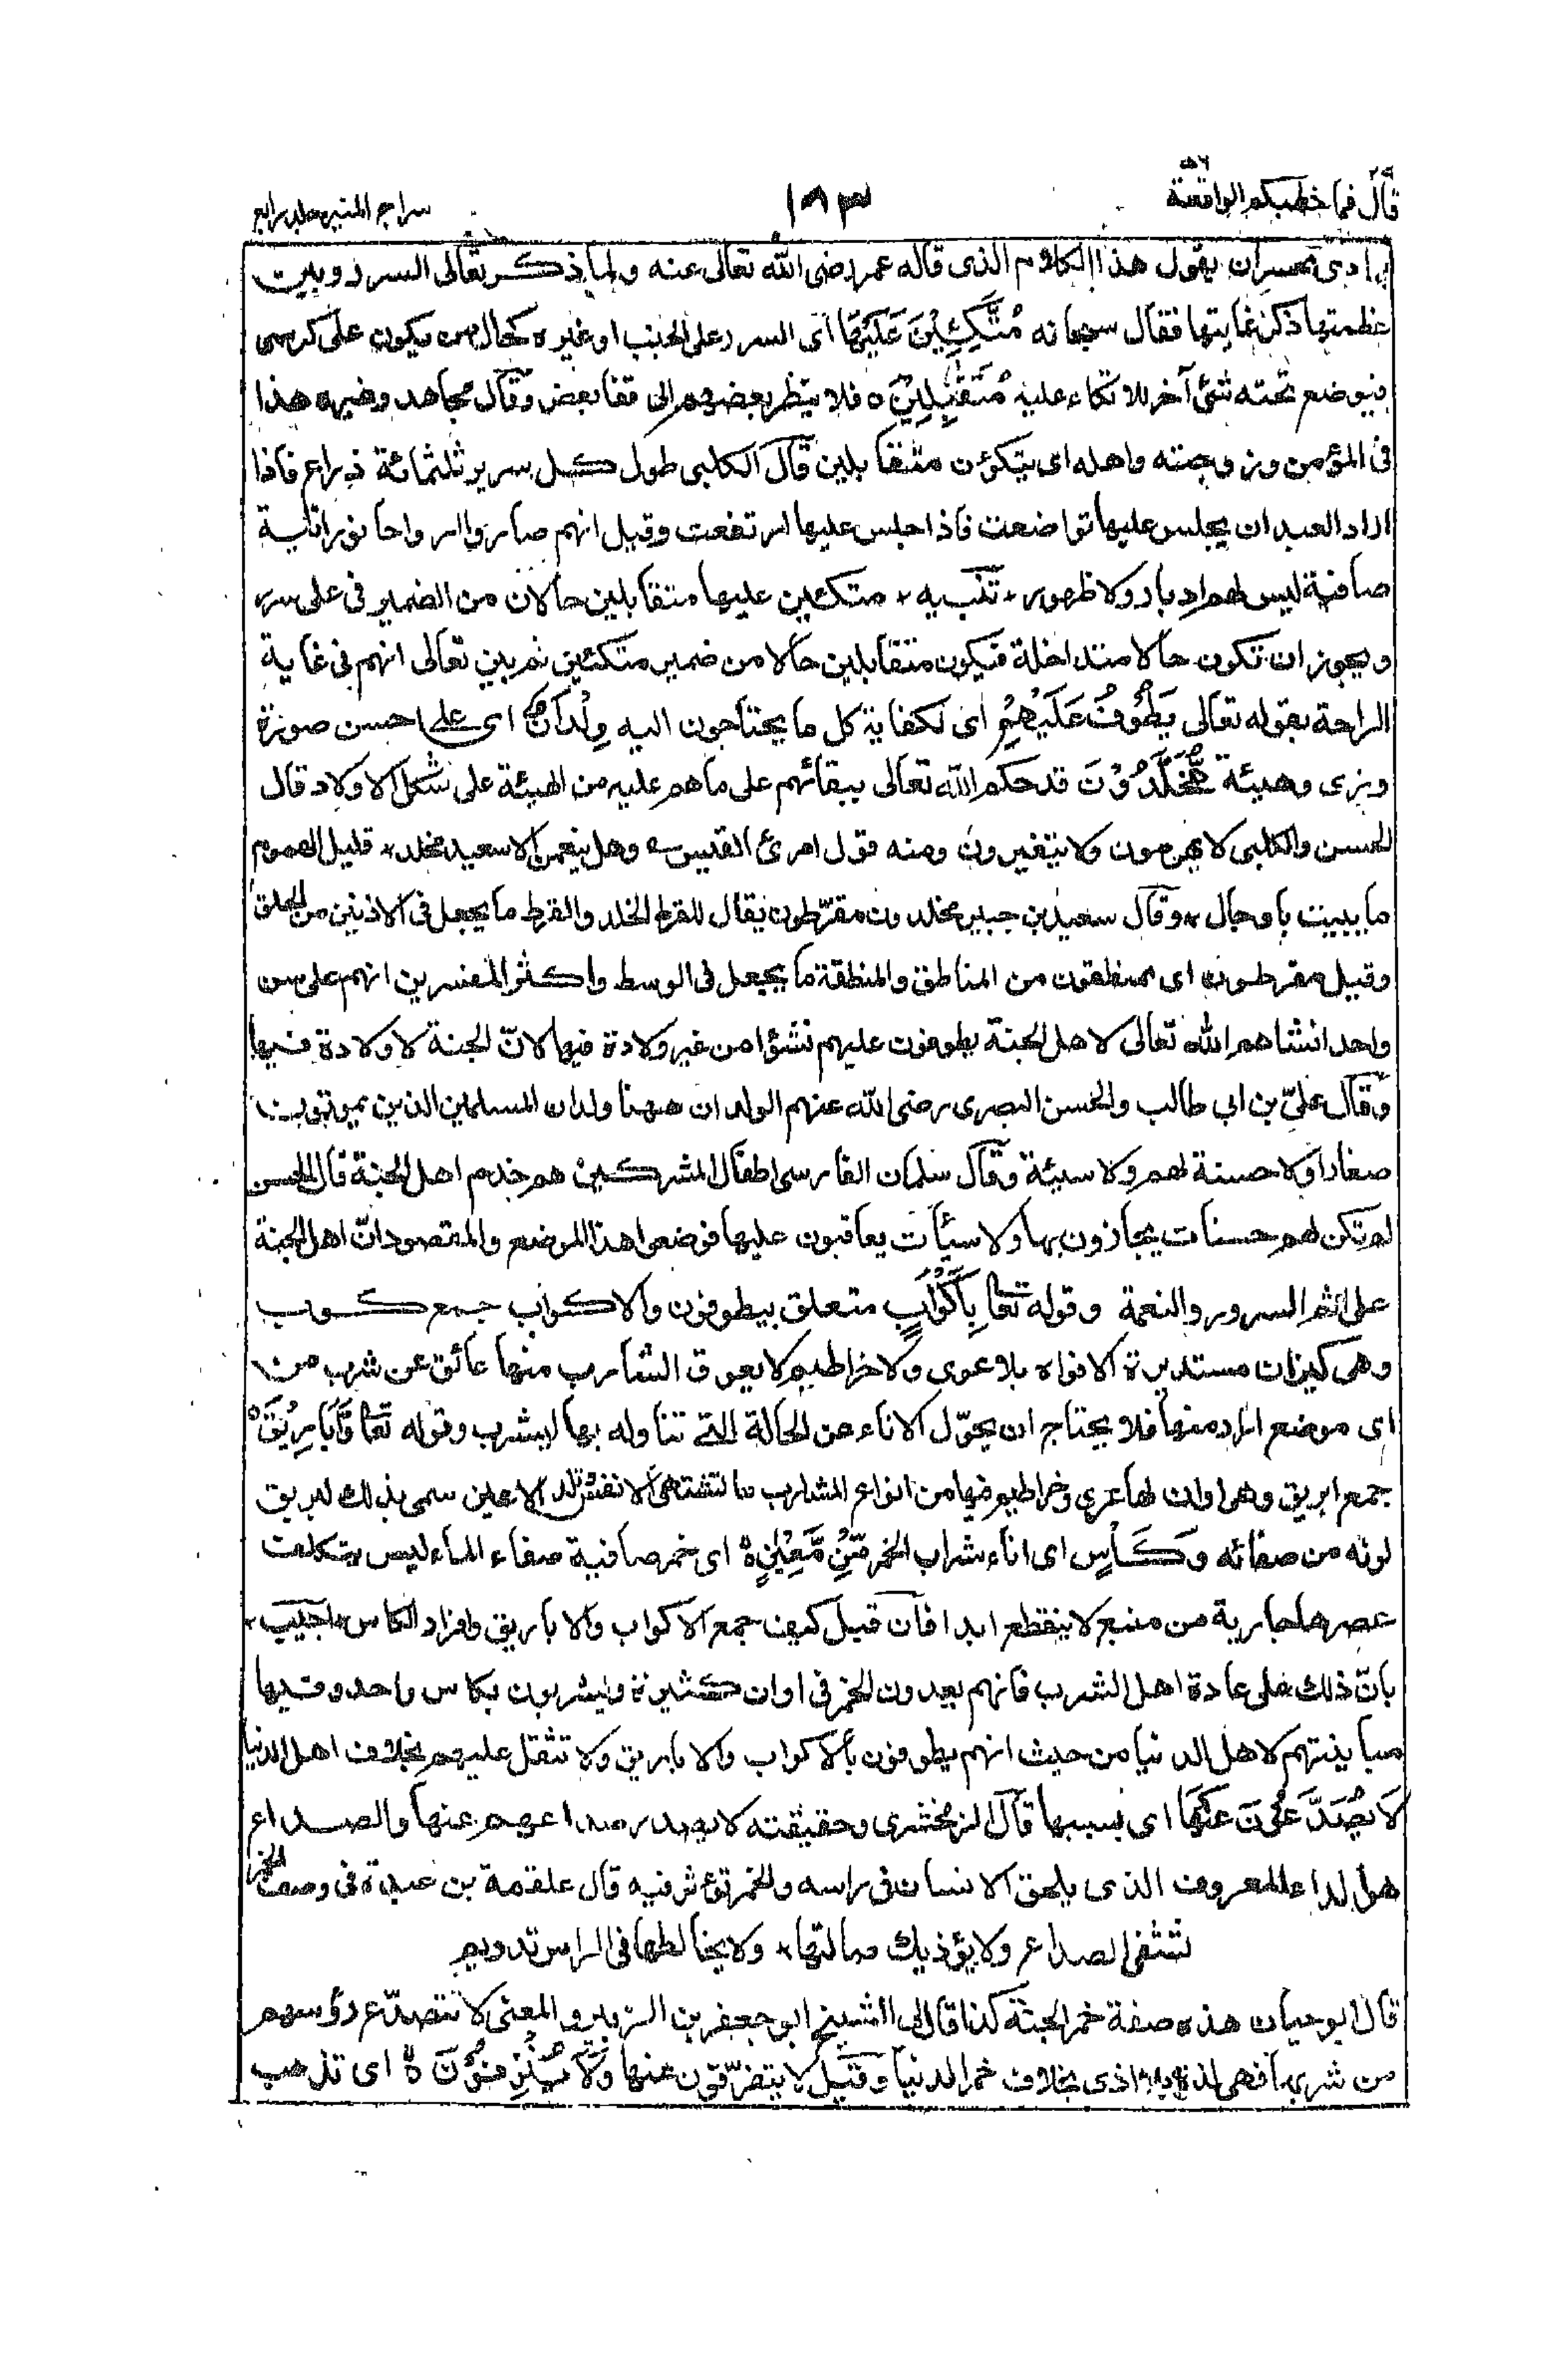 قال فما خطبكم ٢٧ الواقعة ٥٦
١٨٣
سراج المنير جلد رابع
بوادى محسران يقول هذا الكلام الذى قاله عمر رضى الله تعالى عنه ولما ذكر تعالى السرر وبيت
عظمتها ذكر غايتها فقال سبحانه مُتَّكِئِيْنَ عَلَيْهَا اى السرر على الجنب او غيره كحال من يكون على كرسى
فيوضع تحته شئ آخر للاتكاء عليه مُتَقٰبِلِيْنَ ه فلا ينظر بعضهم الى قفا بعض وقال مجاهد وغيره هذا
فى المؤمن وزوجته واهله اى يتكؤن متقابلين قال الكلبى طول كل سرير ثلثمائة ذراع فاذا
اراد العبد ان يجلس عليها تواضعت فاذا جلس عليها ارتفعت وقيل انهم صاروا ارواحا نورانية
صافية ليس لهم ادبار ولا ظهور * تنبيه * متكئين عليها متقابلين حالان من الضمير فى على سرر
ويجوز ان تكون حالا متداخلة فيكون متقابلين حالا من ضمير متكئين ثم بين تعالى انهم فى غاية
الراحة بقوله تعالى يَطُوْفُ عَلَيْهِمْ اى لكفاية كل ما يحتاجون اليه وِلْدَانٌ اى على احسن صورة
وزى وهيئة مُّخَلَّدُوْنَ قد حكم الله تعالى ببقائهم على ما هم عليه من الهيئة على شكل الاولاد قال
الحسن والكلبى لا يهرمون ولا يتغيرون ومنه قول امرئ القيس وهل ينعمن الا سعيد مخلد * قليل الهموم
ما يبيت باوجال * وقال سعيد بن جبير مخلدون مقرّطون يقال للقرط الخلد والقرط ما يجعل فى الاذنين من الحلق
وقيل مقرطون اى ممنطقون من المناطق والمنطقة ما يجعل فى الوسط واكثر المفسرين انهم على سن
واحد انشاهم الله تعالى لاهل الجنة يطوفون عليهم نشؤا من غير ولادة فيها لانّ الجنة لا ولادة فيها
وقال علىّ بن ابى طالب والحسن البصرى رضى الله عنهم الولدان ههنا ولدان المسلمين الذين يموتون
صغارا ولا حسنة لهم ولا سيئة وقال سلمان الفارسى اطفال المشركين هم خدم اهل الجنة قال الحسن
لم تكن لهم حسنات يجازون بها ولا سيأت يعاقبون عليها فوضعوا هذا الموضع والمقصود انّ اهل الجنة
على اتم السرور والنعمة وقوله تعا بِاَكْوَابٍ متعلق بيطوفون والاكواب جمع كوب
وهى كيزان مستديرة الافواه بلا عرى ولا خراطيم لا يعوق الشارب منها عائق عن شرب من
اى موضع اراد منها فلا يحتاج ان يحوّل الاناء عن الحالة التى تناوله بها ليشرب وقوله تعا وَّاَبَارِيْقَ ه
جمع ابريق وهى اوان لها عرى وخراطيم فيها من انواع المشارب ما تشتهى الانفس وتلذ الاعين سمى بذلك لبريق
لونه من صفائه وَكَاْسٍ اى اناء شراب الخمر مِّنْ مَّعِيْنٍ ه اى خمر صافية صفاء الماء ليس يتكلف
عصرها جارية من منبع لا ينقطع ابدا فان قيل كيف جمع الاكواب والاباريق وافرد الكاس * اجيب *
بانّ ذلك على عادة اهل الشرب فانهم يعدون الخمر فى اوان كثيرة ويشربون بكاس واحد وفيها
مباينتهم لاهل الدنيا من حيث انهم يطوفون بالاكواب والاباريق ولا تثقل عليهم بخلاف اهل الدنيا
لَا يُصَدَّعُوْنَ عَنْهَا اى بسببها قال الزمخشرى وحقيقته لا يصدر صداعهم عنها والصداع
هو الداء المعروف الذى يلحق الانسان فى راسه والخمر تؤثر فيه قال علقمة بن عبدة فى وصف الخمر
تشفى الصداع ولا يؤذيك صالبها * ولا يخالطها فى الراس تدويم
قال ابو حيان هذه صفة خمر الجنة كذا قال لى الشيخ ابو جعفر بن الزبير والمعنى لا تتصدّع رؤسهم
من شربها فهى لذة بلا اذى بخلاف خمر الدنيا وقيل لا يتفرّقون عنها وَلَا يُنْزِفُوْنَ ه اى تذهب